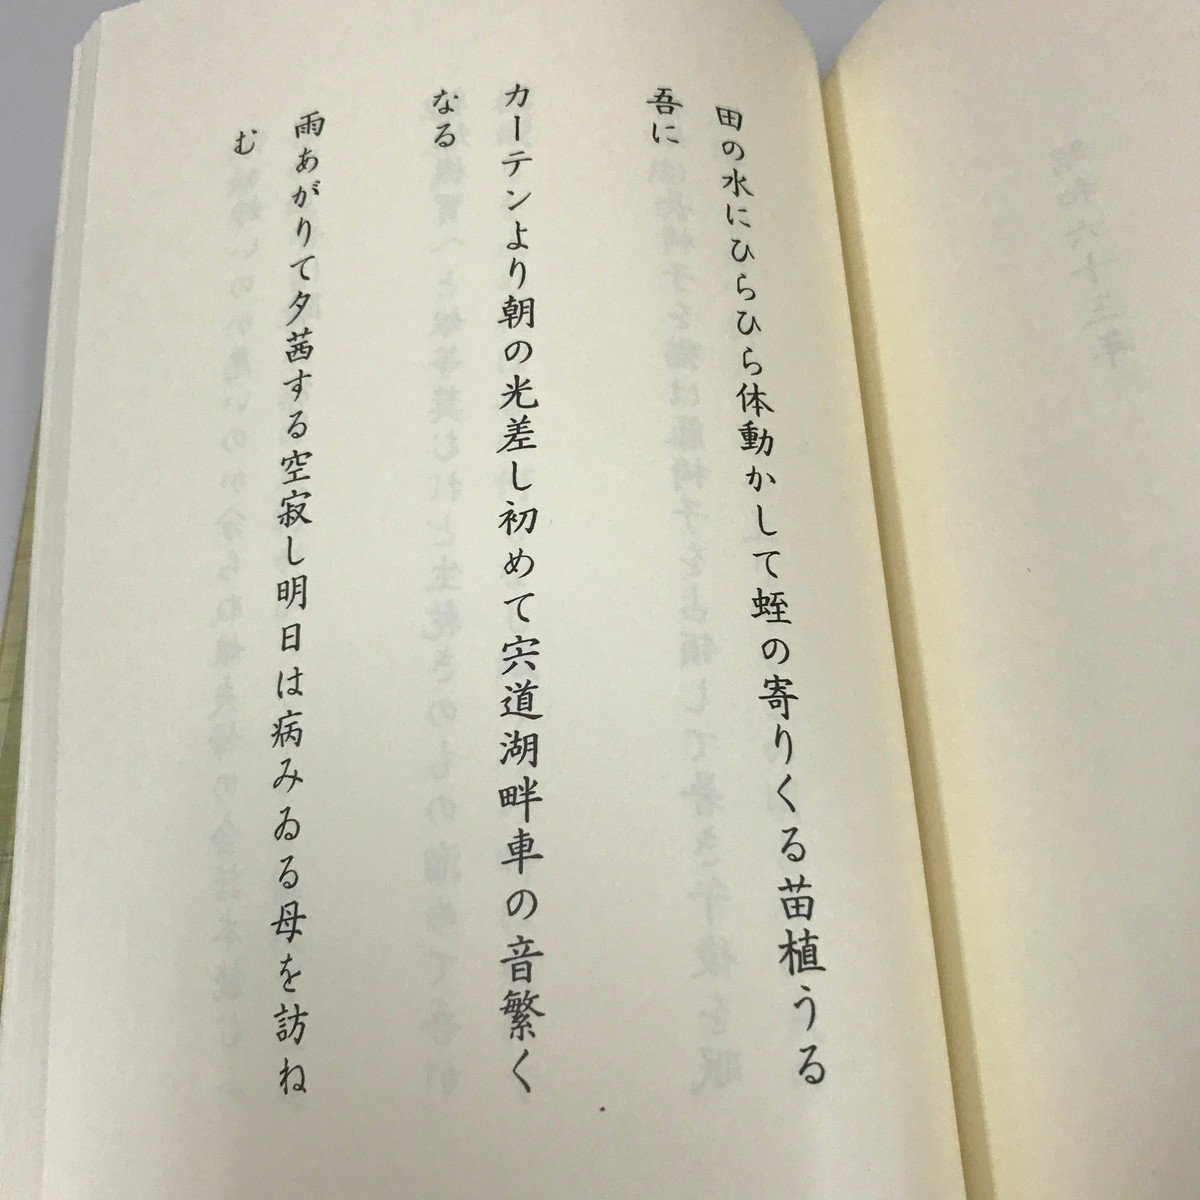 田の水にひらひら体動かして蛭の寄りくる苗植うる
吾に
カーテンより朝の光差し初めて宍道湖畔車の音繁く
なる
雨あがりて夕茜する空寂し明日は病みゐる母を訪ね
む